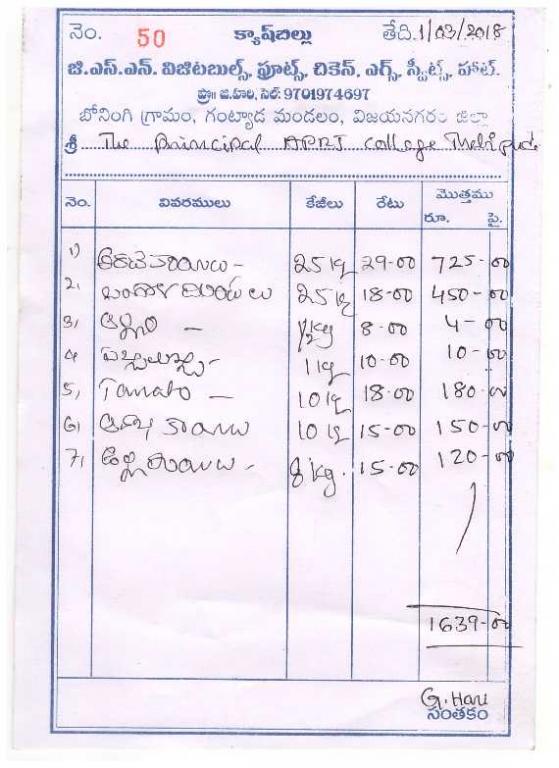 నెం. 50 క్యాష్‌బిల్లు తేది.1/03/2018
జి.ఎస్.ఎన్. విజిటబుల్స్, ఫ్రూట్స్, చికెన్, ఎగ్స్, స్వీట్స్, హాట్.
ప్రొ॥ జి.హరి, సెల్: 9701974697
బోనింగి గ్రామం, గంట్యాడ మండలం, విజయనగరం జిల్లా
శ్రీ The Principal APRJ College
నెం. వివరములు కేజీలు రేటు మొత్తము
రూ. పై.
1) 25 kg 29-00 725-00
2, బంగాళ దుంపలు 25 kg 18-00 450-00
3, అల్లం - 1/2kg 8-00 4-00
4 1 kg 10-00 10-00
5, Tomato - 10 kg 18-00 180-00
6, కాయలు 10 kg 15-00 150-00
7, 8 kg. 15-00 120-00
1639-00
G. Hari
సంతకం